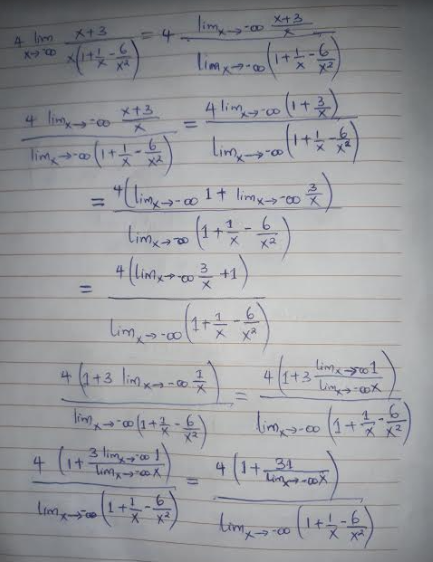 4 lim_{x→-∞} \frac{x+3}{x(1+\frac{1}{x}-\frac{6}{x²})} = 4 \frac{lim_{x→-∞} \frac{x+3}{x}}{lim_{x→-∞} (1+\frac{1}{x}-\frac{6}{x²})}
\frac{4 lim_{x→-∞} \frac{x+3}{x}}{lim_{x→-∞} (1+\frac{1}{x}-\frac{6}{x²})} = \frac{4 lim_{x→-∞} (1+\frac{3}{x})}{lim_{x→-∞} (1+\frac{1}{x}-\frac{6}{x²})}
= \frac{4 (lim_{x→-∞} 1 + lim_{x→-∞} \frac{3}{x})}{lim_{x→-∞} (1+\frac{1}{x}-\frac{6}{x²})}
= \frac{4 (lim_{x→-∞} \frac{3}{x} +1)}{lim_{x→-∞} (1+\frac{1}{x}-\frac{6}{x²})}
\frac{4 (1+3 lim_{x→-∞} \frac{1}{x})}{lim_{x→-∞} (1+\frac{1}{x}-\frac{6}{x²})} = \frac{4 (1+3 \frac{lim_{x→-∞} 1}{lim_{x→-∞} x})}{lim_{x→-∞} (1+\frac{1}{x}-\frac{6}{x²})}
\frac{4 (1+\frac{3 lim_{x→-∞} 1}{lim_{x→-∞} x})}{lim_{x→-∞} (1+\frac{1}{x}-\frac{6}{x²})} = \frac{4 (1+\frac{31}{lim_{x→-∞} x})}{lim_{x→-∞} (1+\frac{1}{x}-\frac{6}{x²})}